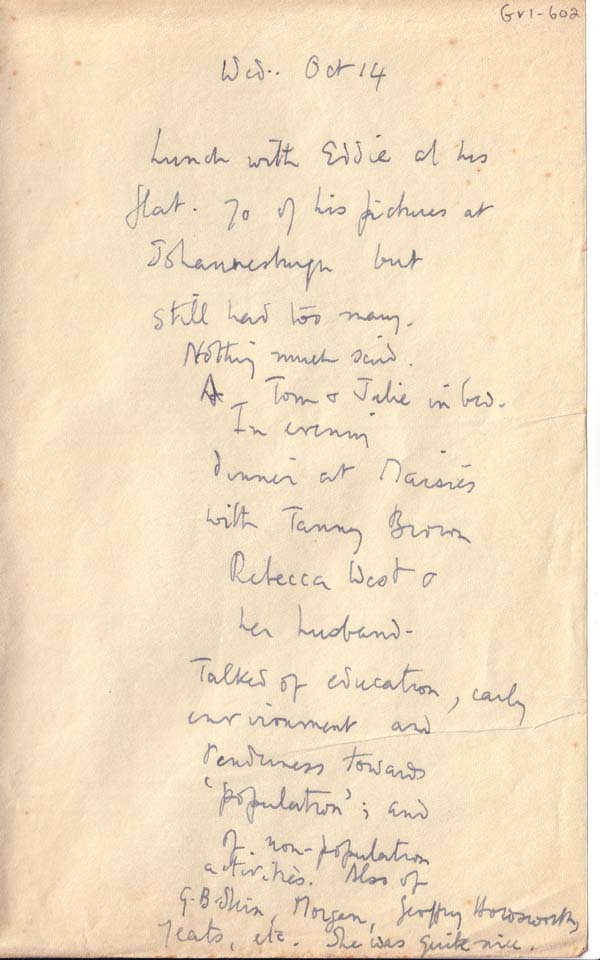 GV1-602
Wed. Oct 14
Lunch with Eddie at his
flat. 70 of his pictures at
Johannesburgh but
still had too many.
Nothing much said.
Tom & Julie in bed.
In evening
dinner at Maisie's
with Tanny Brown
Rebecca West &
her husband-
Talked of education, early
environment and
tenderness towards
'population'; and
of non-population
activities. Also of
G.B. Morgan, Geoffrey
Yeats, etc. She was quite nice.